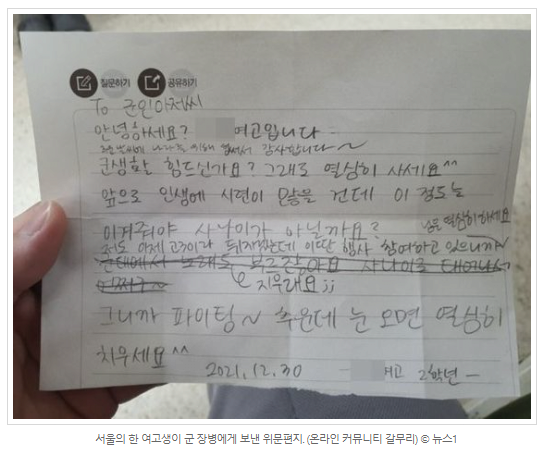 질문하기 공유하기
To 군인아저씨
안녕하세요? 여고입니다~
추운 날에 나라를 위해 힘써서 감사합니다~
군생활 힘드신가요? 그래도 열심히 사세요^^
앞으로 인생에 시련이 많을 건데 이 정도는
이겨줘야 사나이가 아닐까요?
님들 열심히 하세요
저도 이제 고3이라 뒤지겠는데 이딴 행사 참여하고 있으니까~
군대에서 노래도 부르잖아요 사나이로 태어나서
어쩌구~
지우래요;;
그니까 파이팅~ 추운데 눈 오면 열심히
치우세요^^
2021.12.30 여고 2학년-
서울의 한 여고생이 군 장병에게 보낸 위문편지. (온라인 커뮤니티 갈무리) © 뉴스1